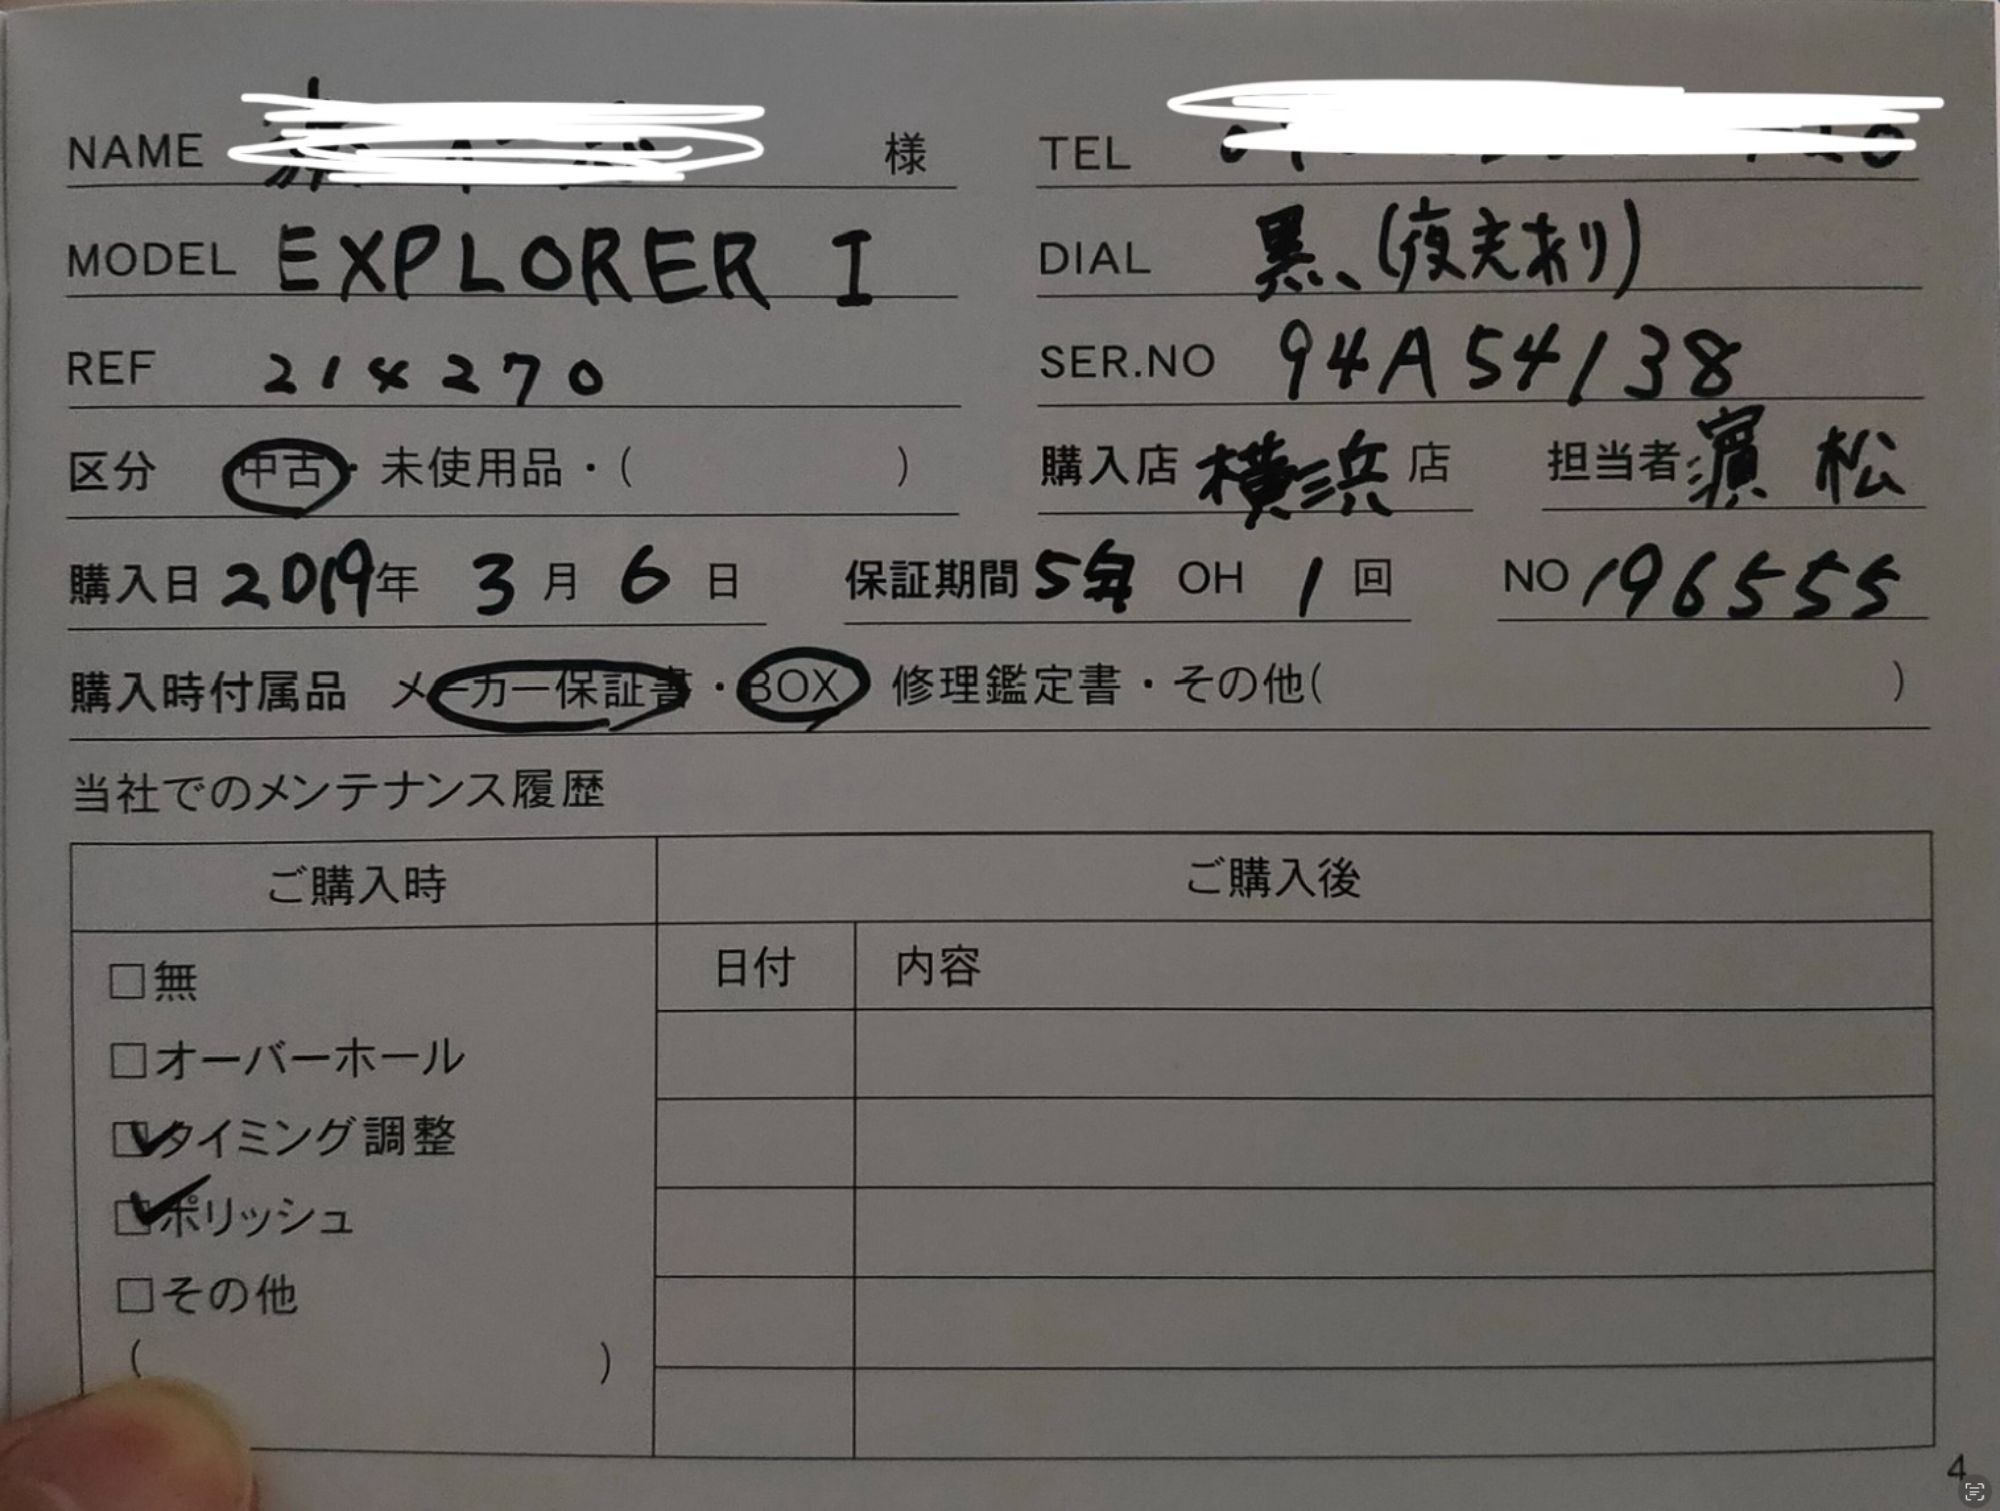 NAME 様 TEL
MODEL EXPLORER I DIAL 黒、(夜光あり)
REF 214270 SER.NO 94A54138
区分 中古・未使用品・( ) 購入店 横浜 店 担当者 濱松
購入日 2019年 3月 6日 保証期間 5年 OH 1回 NO 196555
購入時付属品 メーカー保証書・BOX 修理鑑定書・その他( )
当社でのメンテナンス履歴
ご購入時 ご購入後
日付 内容
□無
□オーバーホール
☑タイミング調整
☑ポリッシュ
□その他
( )
4